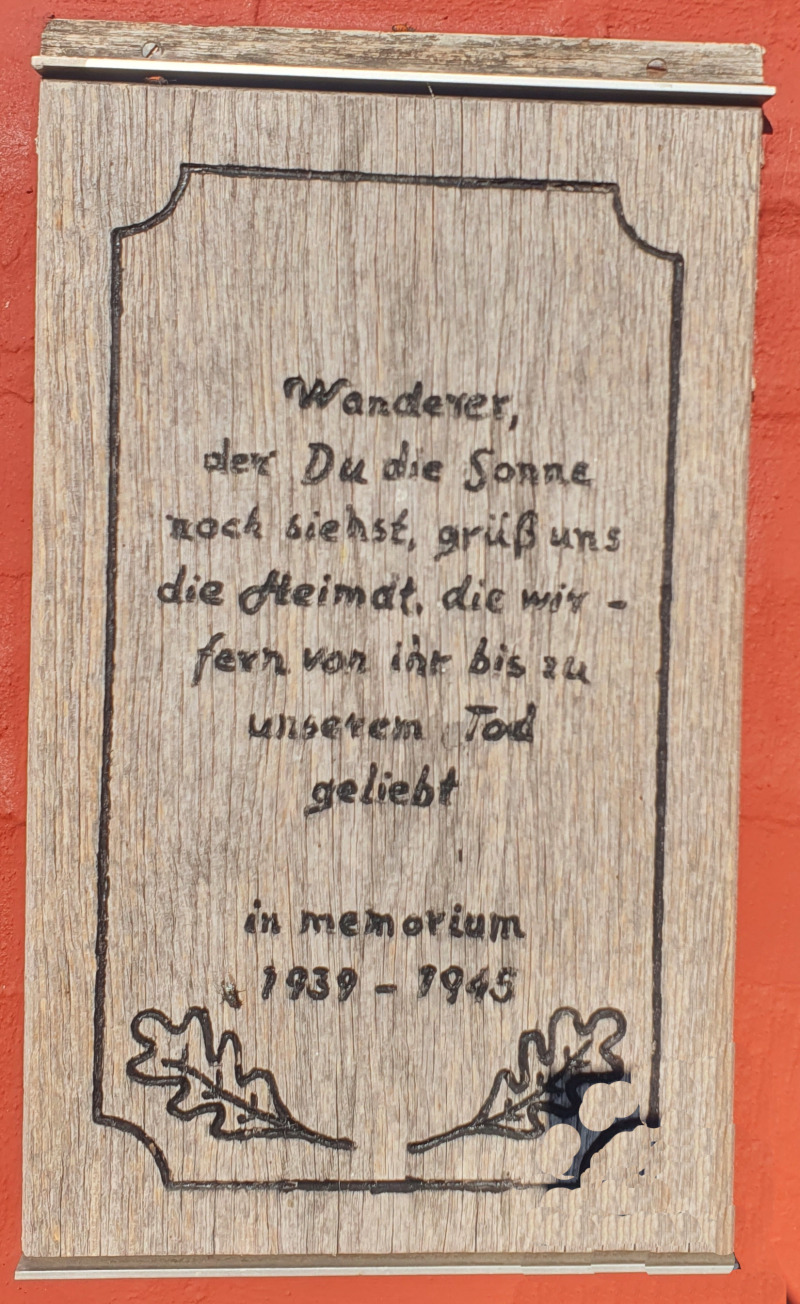 Wanderer,
der Du die Sonne
noch siehst, grüß uns
die Heimat, die wir -
fern von ihr bis zu
unserem Tod
geliebt
in memorium
1939 - 1945